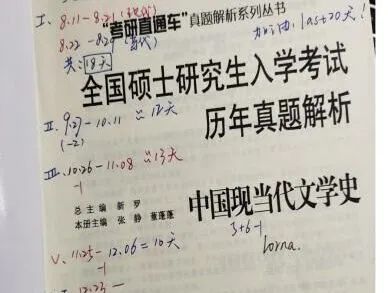 I. 8.11-8.21(现代)
8.22-8.29(当代)
共:18天
加油!last 20天!
"考研直通车"真题解析系列丛书
全国硕士研究生入学考试
历年真题解析
II. 9.27-10.11 = 12天
(-2)
III. 10.26-11.08 = 13天
-1
总主编 新罗
本册主编 张静 董蓬蓬
中国现当代文学史
3+6-1
lorna.
V. 11.25-12.06=10天
-1
12.23-